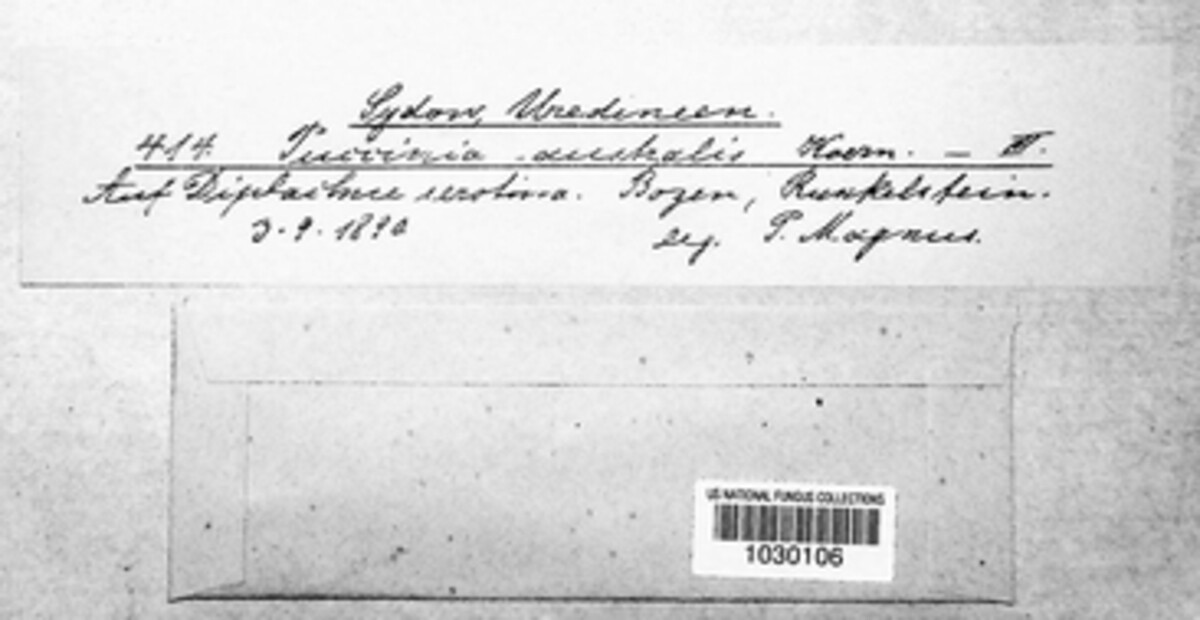 Sydow, Uredineen.
414. Puccinia australis Koern. — III.
Auf Diplachne serotina. Bozen, Runkelstein.
3.9.1890 leg. P. Magnus.
US NATIONAL FUNGUS COLLECTIONS
1030106